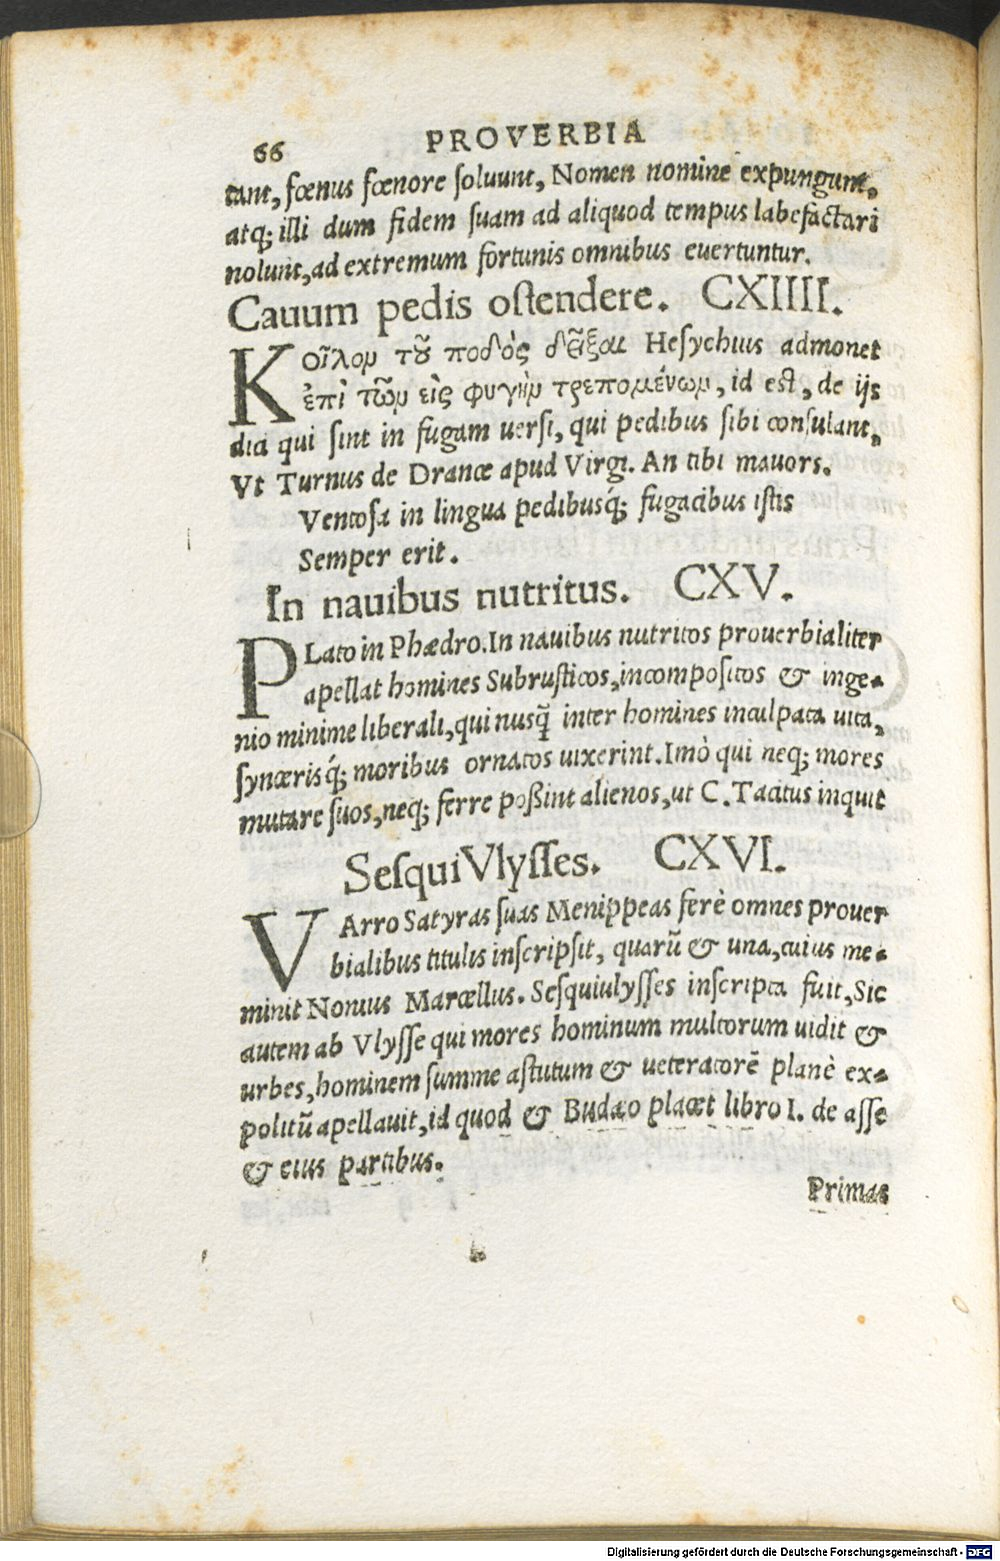 66 PROVERBIA
tant, fœnus fœnore ſoluunt, Nomen nomine expungunt,
atq; illi dum fidem ſuam ad aliquod tempus labefactari
nolunt, ad extremum fortunis omnibus euertuntur.
Cauum pedis oſtendere. CXIIII.
Κοῖλον τοῦ ποδὸς δεῖξαι Heſychius admonet
ἐπὶ τῶν εἰς φυγὴν τρεπομένων, id eſt, de ijs
dici qui ſint in fugam uerſi, qui pedibus ſibi conſulant,
Vt Turnus de Drance apud Virgi. An tibi mauors.
Ventoſa in lingua pedibusq́; fugacibus iſtis
Semper erit.
In nauibus nutritus. CXV.
PLato in Phædro. In nauibus nutritos prouerbialiter
apellat homines Subruſticos, incompoſitos & inge-
nio minime liberali, qui nusq̃ inter homines inculpata uita,
ſyncærisq́; moribus ornatos uixerint. Imò qui neq; mores
mutare ſuos, neq; ferre poßint alienos, ut C. Tacitus inquit
SeſquiVlyſſes. CXVI.
VArro Satyras ſuas Menippeas ferè omnes prouer
bialibus titulis inſcripſit, quarũ & una, cuius me-
minit Nonius Marcellus. Seſquiulyſſes inſcripta fuit, Sic
autem ab Vlyſſe qui mores hominum multorum uidit &
urbes, hominem ſumme aſtutum & ueteratorẽ planè ex-
politũ apellauit, id quod & Budæo placet libro I. de aſſe
& eius partibus.
Primas
Digitalisierung gefördert durch die Deutsche Forschungsgemeinschaft - DFG